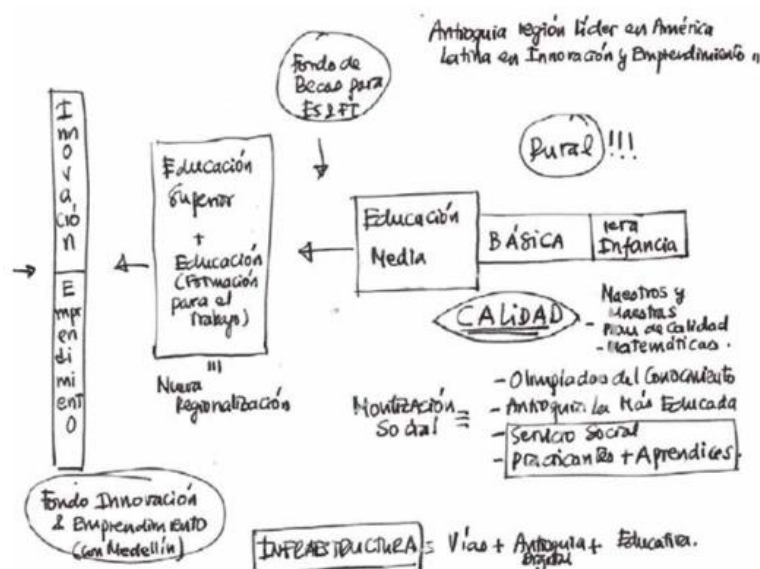 Antioquia región líder en América
Latina en Innovación y Emprendimiento
Fondo de
Becas para
ES&FT
Rural !!!
Innovación
Emprendimiento
Educación
Superior
+
Educación
(Formación
para el
Trabajo)
Nueva
Regionalización
Educación
Media
BÁSICA
1era
Infancia
CALIDAD
- Maestros y
Maestras
- Plan de Calidad
- Matemáticas.
Movilización
Social
- Olimpiadas del Conocimiento
- Antioquia La Más Educada
- Servicio Social
- Practicantes + Aprendices.
Fondo Innovación
& Emprendimiento
(con Medellín)
INFRAESTRUCTURA = Vías + Antioquia + Educativa.
Digital